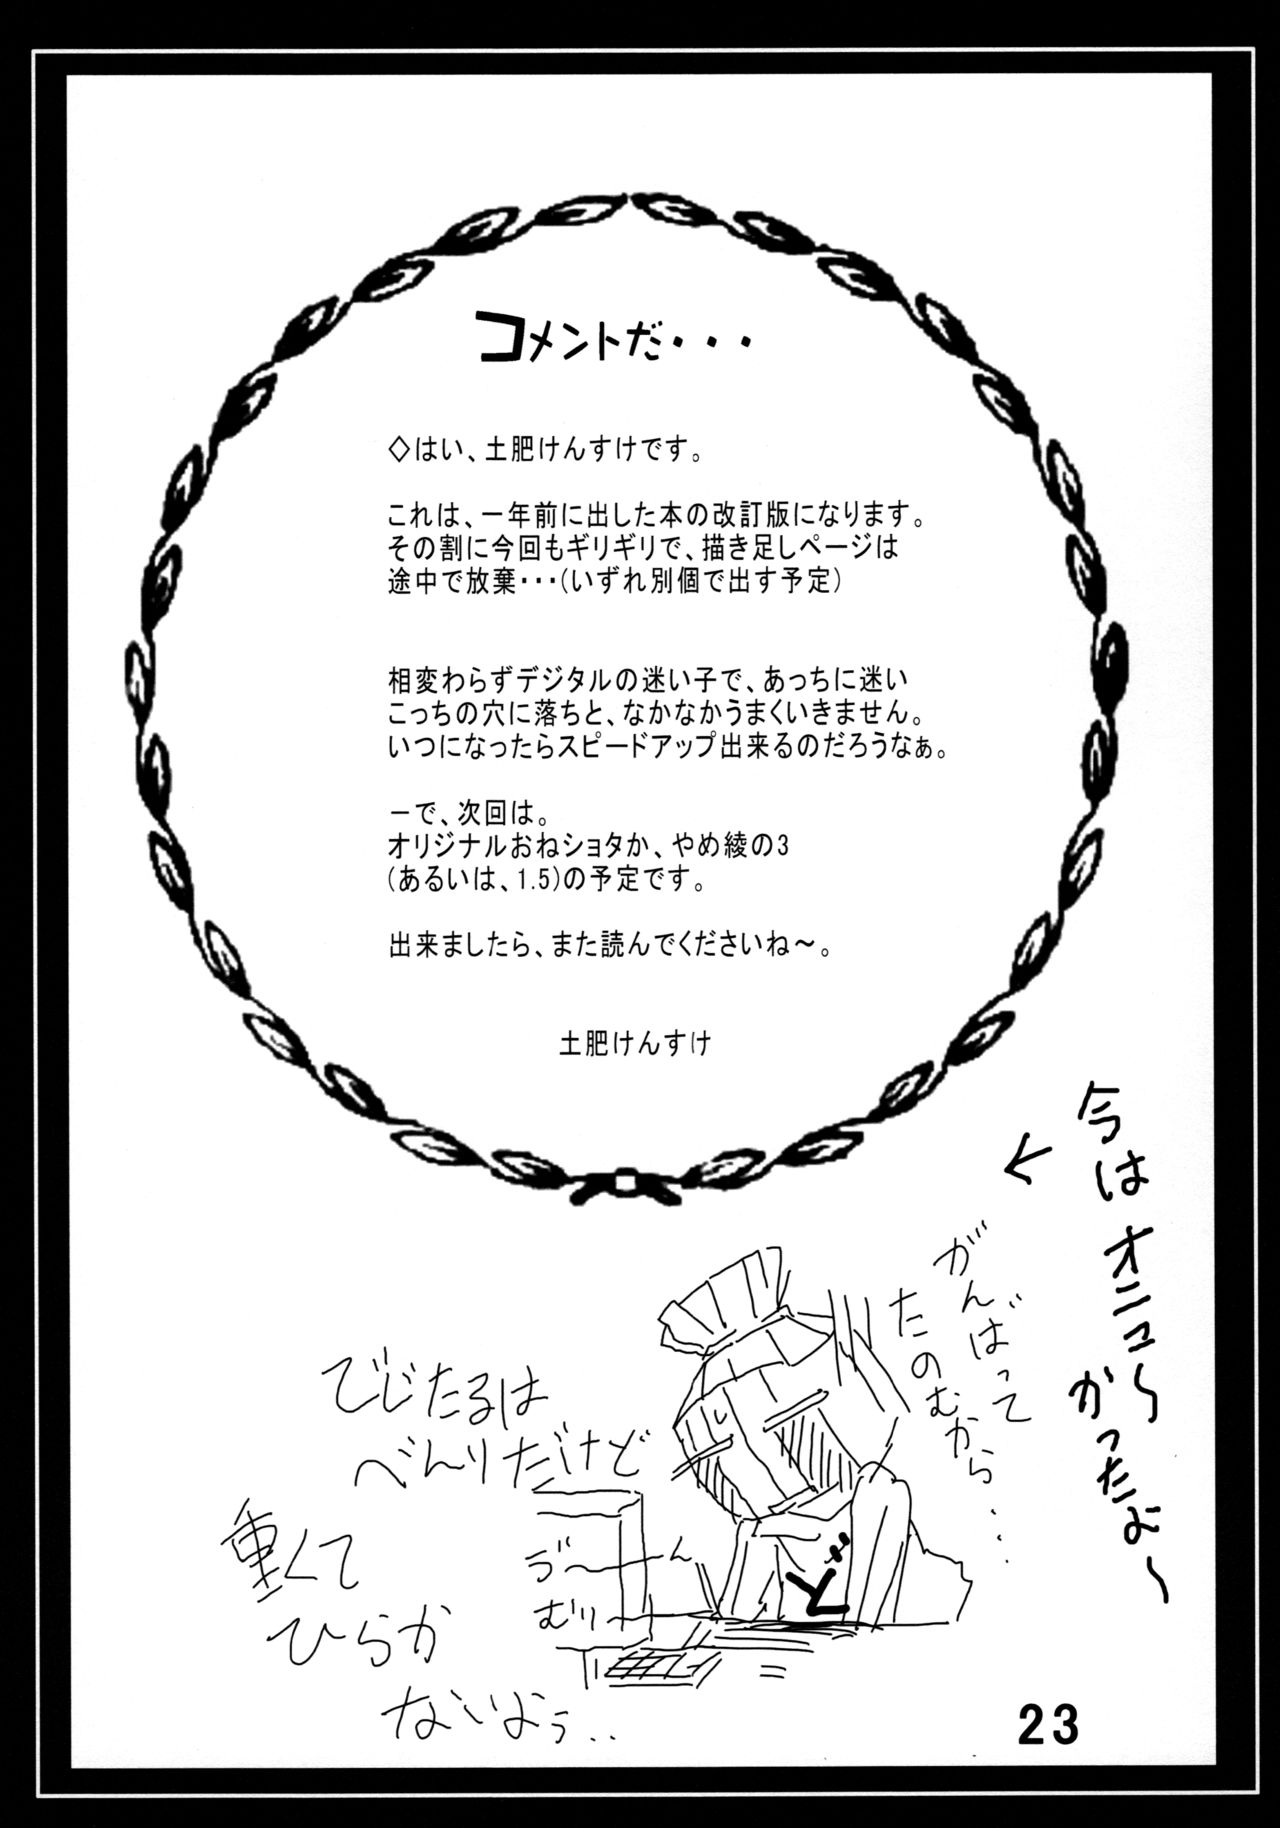 コメントだ・・・
◇はい、土肥けんすけです。
これは、一年前に出した本の改訂版になります。
その割に今回もギリギリで、描き足しページは
途中で放棄･･･(いずれ別個で出す予定)
相変わらずデジタルの迷い子で、あっちに迷い
こっちの穴に落ちと、なかなかうまくいきません。
いつになったらスピードアップ出来るのだろうなぁ。
－で、次回は。
オリジナルおねショタか、やめ綾の3
(あるいは、1.5)の予定です。
出来ましたら、また読んでくださいね～。
土肥けんすけ
今はオニューだ
かったよ～
がんばって
たのむから・・・
でじたるは
べんりだけど
重くて
ひらか
ないよぅ・・
ゔ～ん
むり～
ど
23